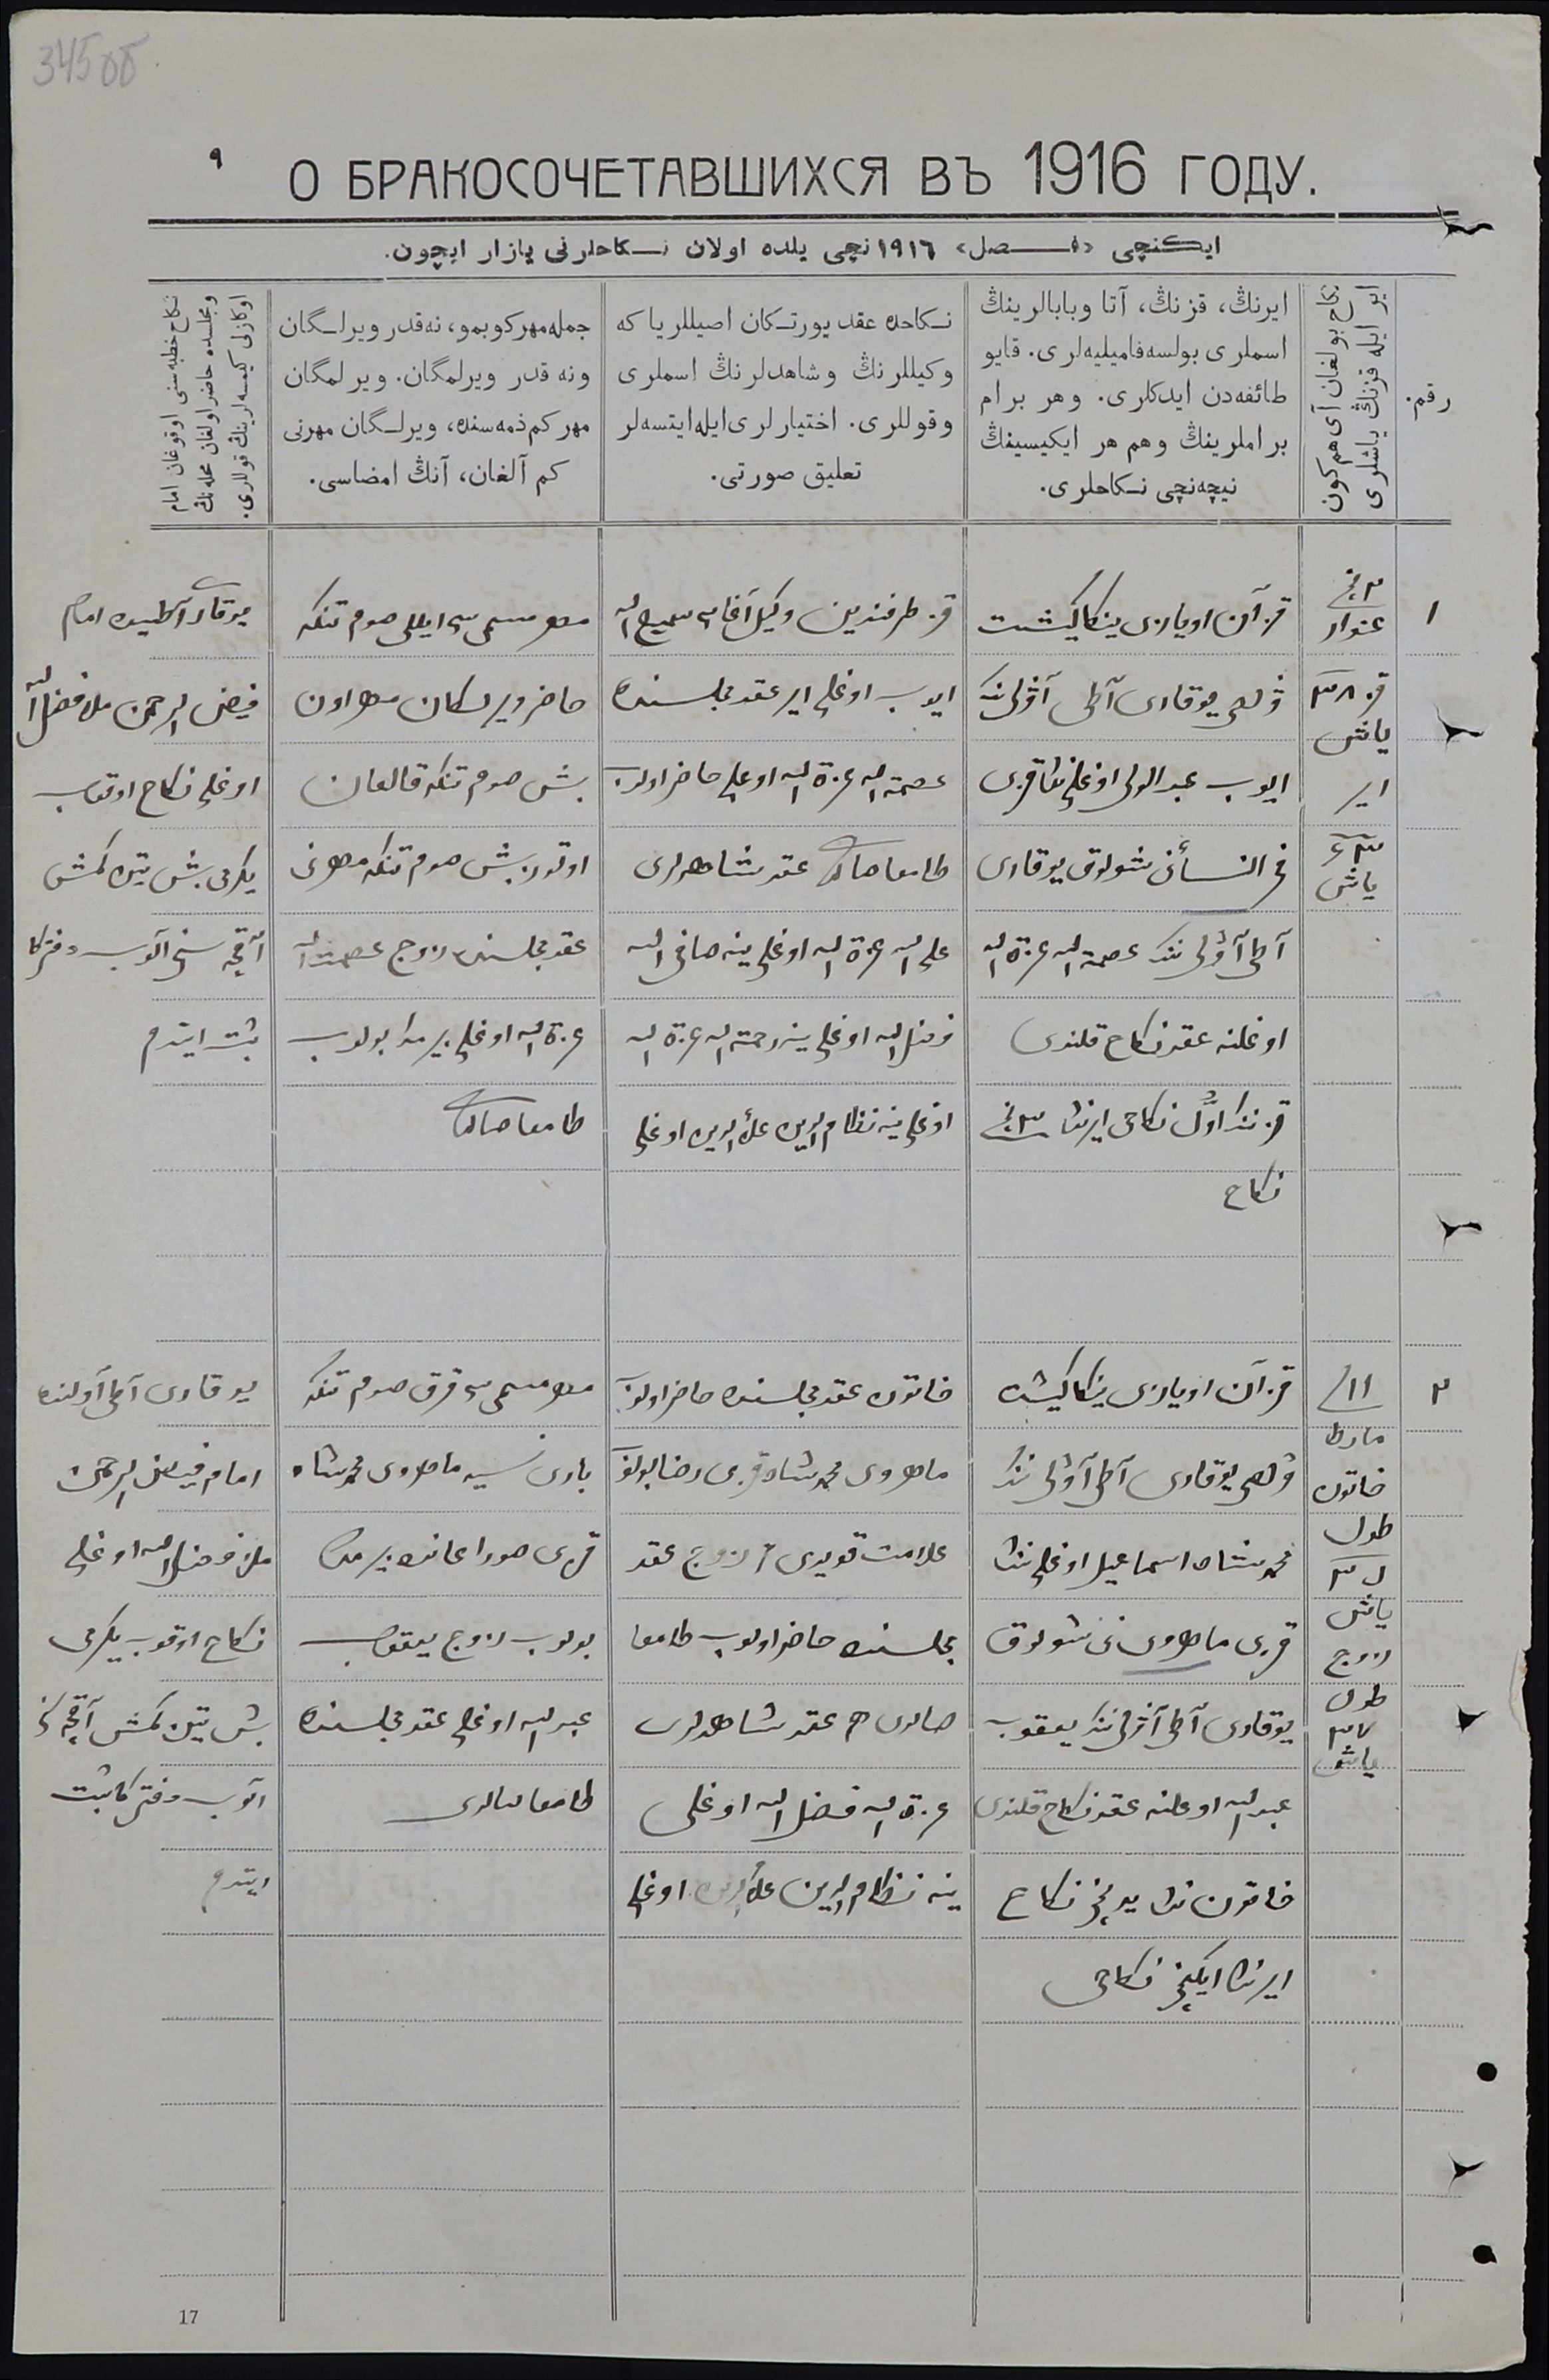 345об.
٩
О БРАКОСОЧЕТАВШИХСЯ ВЪ 1916 ГОДУ.
ایکنچی «فصل» ١٩١٦ نچی یلده اولان نکاحلرنی یازار ایچون.
رقم.
نکاح بولغان آی هم کون
ایر ایله قزنڭ یاشلری
ایرنڭ، قزنڭ، آتا وبابالرینڭ
اسملری بولسه فامیلیه‌لری. قایو
طائفه‌دن ایدکلری. وهر برام
براملرینڭ وهم هر ایکیسینڭ
نیچه‌نچی نکاحلری.
نکاحده عقد یورتکان اصیللر یا که
وکیللرنڭ وشاهدلرنڭ اسملری
وقوللری. اختیارلری ایله ایتسه‌لر
تعلیق صورتی.
جمله مهر کوبمو، نه قدر ویرلگان
ونه قدر ویرلمگان. ویرلمگان
مهر کم ذمه‌سنده، ویرلگان مهرنی
کم آلغان، آنڭ امضاسی.
نکاح خطبه سنی اوقوغان امام
ومجلسده حاضر اولغان محله‌نڭ
اوکازلی کیسه‌لرینڭ قوللری.
١
٣ نچی
غنوار
قز ٣٨
یاش
ایر
یاش
قزآن اویازی ینکا کیشت
ولصی یوقاری آطی آولی ننک
ایوب عبد الولی اوغلی ننک قزی
فخر النسأنی شولوق یوقاری
آطی آولی ننک عصمة الله عزة الله
اوغلنه عقد نکاح قلندی
قز ننک اوّل نکاحی ایر ننک ٣ نچی
نکاح
قز طرفندین وکیل آغاسی سمیع الله
ایوب اوغلی ایر عقد مجلسنده
عصمة الله عزة الله اوغلی حاضر اولوب
طامغا صالدی عقد شاهدلری
علی الله عزة الله اوغلی ینه صافی الله
فضل الله اوغلی ینه رحمة الله عزة الله
اوغلی ینه نظام الدین علأ الدین اوغلی
مهر مسمی سی ایللی صوم تنکه
حاضر ویرلکان مهر اون
بش صوم تنکه قالغان
اوتوز بش صوم تنکه مهرنی
عقد مجلسنده زوج عصمت الله
عزة الله اوغلی بیرمک بولوب
طامغا صالدی
یوقاری آطیده امام
فیض الرحمن ملا فضل الله
اوغلی نکاح اوقوب
یکرمی بش تین کمش
آقچه سنی آلوب دفترکا
ثبت ایتدم
٢
١١
مارط
خاتون
طول
یاش
زوج
طول
٣٧
یاش
قزآن اویازی ینکا کیشده
ولصی یوقاری آطی آولی ننک
محمد شاه اسماعیل اوغلی ننک
قزی ماهروی نی شولوق
یوقاری آطی آولی ننک یعقوب
عبد الله اوغلنه عقد نکاح قلندی
خاتون ننک نکاح
ایر ننک ایکنچی نکاحی
خاتون عقد مجلسنده حاضر اولوب
ماهروی محمد شاه قزی رضا بولوب
علامت قویدی زوج عقد
مجلسنده حاضر اولوب طامغا
صالدی هم عقد شاهدلری
عزة الله فضل الله اوغلی
ینه نظام الدین علأ الدین اوغلی
مهر مسمی سی قرق صوم تنکه
ماهروی محمد شاه
قزی بیرمک
بولوب زوج یعقوب
عبد الله اوغلی عقد مجلسنده
طامغا صالدی
یوقاری آطی آولنده
امام فیض الرحمن
ملا فضل الله اوغلی
نکاح اوقوب یکرمی
بش تین کمش آقچه نی
آلوب دفترکا ثبت
ایتدم
17